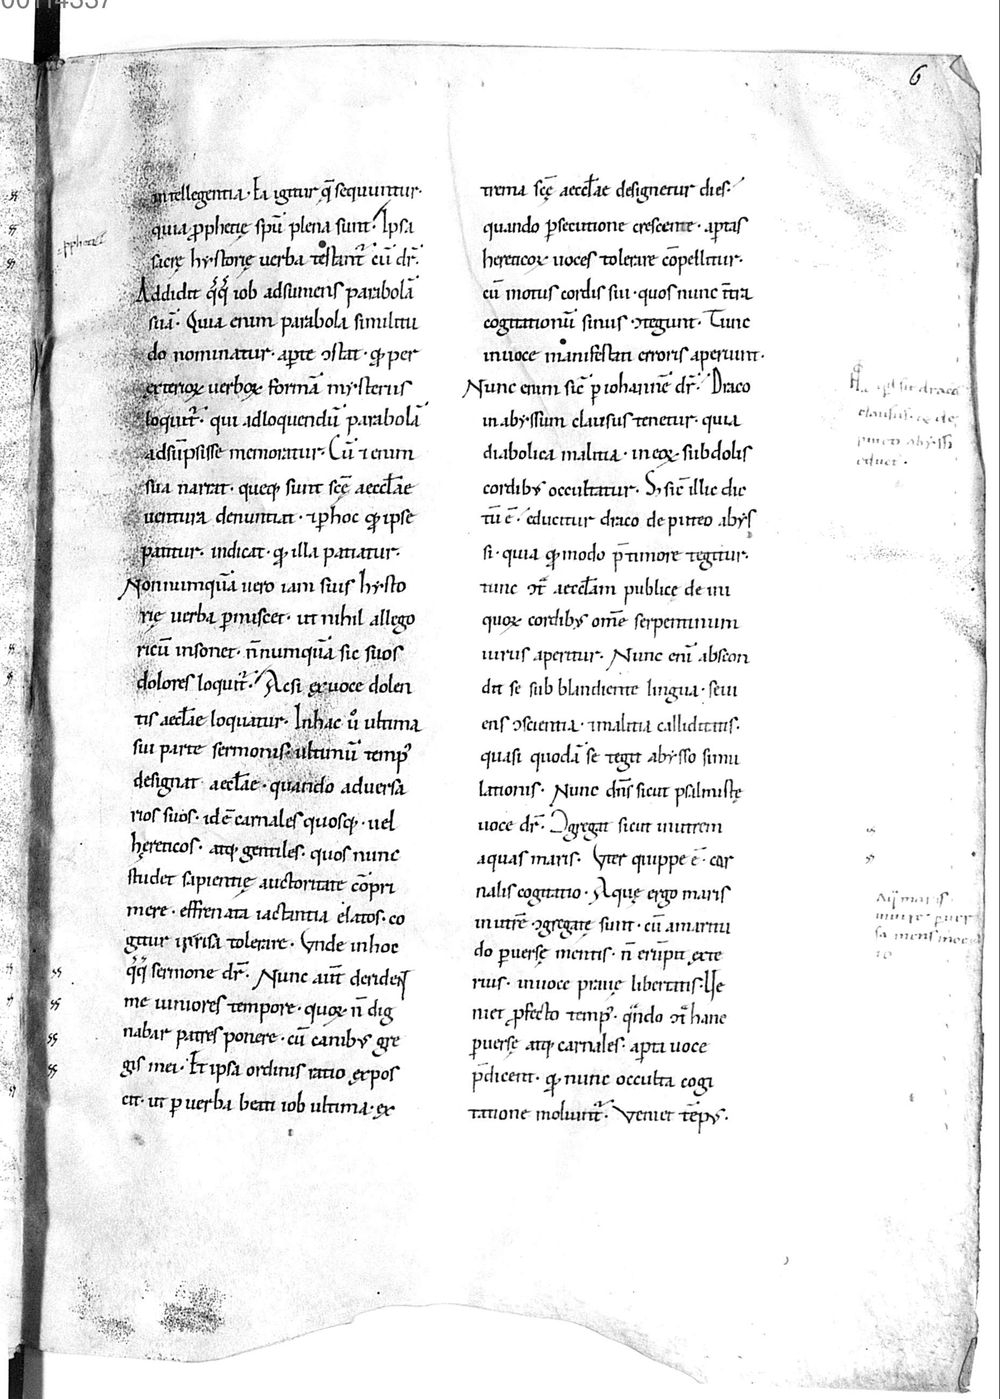 6
intellegentia· Ea igitur q̄ sequuntur·
quia ꝓphetię sp̄u plena sunt· Ipsa
sacrę hystorię uerba testant᷑ cū dr̄·
Addidit q̊q̊ iob adsumens parabolā
suā· Quia enim parabola similitu
do nominatur· aperte ɔstat· qđ per
exterioꝝ uerboꝝ formā mysteriis
loquit᷑· qui adloquendū parabolā
adsūpsisse memoratur· Cū enim
sua narrat· quęq; sunt scę̄ aecclae
uentura denuntiat· ⁊ ꝑ hoc qđ ipse
patitur· indicat· qđ illa patiatur·
Nonnumquā uero iam suis hysto
rię uerba ꝑmiscet· ut nihil allego
ricū insonet· n̄numquā sic suos
dolores loquit᷑· Acsi ex uoce dolen
tis aecłae loquatur· In hac ů ultima
sui parte sermonis· ultimū temp᷒
designat aecłae· quando aduersa
rios suos· id ē carnales quosq;· uel
hęreticos· atq; gentiles· quos nunc
studet sapientię auctoritate cōpri
mere· effrenata iactantia elatos· co
gitur irrisa tolerare· Vnde in hoc
q̊q̊ sermone dr̄· Nunc aut̄ derident
me iuniores tempore· quoꝝ n̄ dig
nabar patres ponere· cū canibꝰ gre
gis mei· Et ipsa ordinis ratio expos
cit· ut ꝑ uerba beati iob ultima· ex
trema scę̄ aecclae designetur dies·
quando ꝑsecutione crescente· aptas
hereticoꝝ uoces tolerare cōpellitur·
cū motus cordis sui· quos nunc īt̄ra
cogitationū sinus ɔtegunt· Tunc
in uoce manifestati erroris aperiunt·
Nunc enim sic̄ ꝑ iohannē dr̄· Draco
in abyssum clausus tenetur· quia
diabolica malitia· in eoꝝ subdolis
cordibꝰ occultatur· S; sic̄ illic dic
tū ē· educitur draco de puteo abys
si· quia qđ modo p̄ timore tegitur·
tunc ɔt̄ aecclam publice de ini
quoꝝ cordibꝰ om̄e serpentinum
uirus aperitur· Nunc eni abscon
dit se sub blandiente lingua· seui
ens ɔscientia· ⁊ malitia calliditatis·
quasi quodā se tegit abysso simu
lationis· Nunc dn̄s sicut psalmistę
uoce dr̄· ɔgregat sicut in utrem
aquas maris· Vter quippe ē· car
nalis cogitatio· Aquę ergo maris
in utrē· ɔgregatę sunt· cū amaritu
do ꝑuersę mentis· n̄ erūpit exte
rius· in uoce prauę libertatis· Ue
niet ꝓfecto temp᷒· q̄ndo ɔt̄ hanc
ꝑuersę atq; carnales· aperta uoce
p̄dicent· qđ nunc occulta cogi
tatione moliunt᷑· Veniet tēpꝰ·